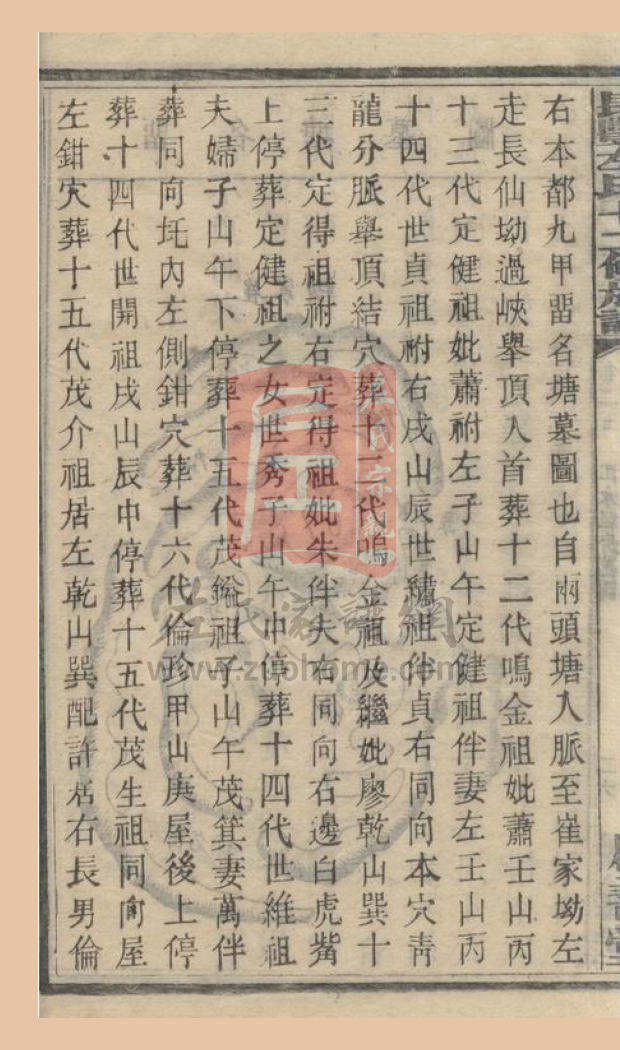 右本都九甲畱名塘墓圖也自兩頭塘入脈至崔家坳左
走長仙坳過峽舉頂入首葬十二代鳴金祖妣蕭壬山丙
十三代定健祖妣蕭祔左子山午定健祖伴妻左壬山丙
十四代世貞祖祔右戌山辰世繡祖伴貞右同向本穴靑
龍分脈舉頂結穴葬十二代鳴金祖及繼妣廖乾山巽十
三代定得祖祔右定得祖妣朱伴夫右同向右邊白虎嘴
上停葬定健祖之女世秀子山午中停葬十四代世維祖
夫婦子山午下停葬十五代茂鎰祖子山午茂箕妻萬伴
葬同向圫內左側鉗穴葬十六代倫珍甲山庚屋後上停
葬十四代世開祖戌山辰中停葬十五代茂生祖同向屋
左鉗穴葬十五代茂介祖居左乾山巽配許居右長男倫
左氏家譜網
www.zuohome.com